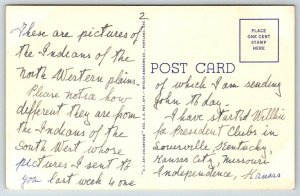 2
These are pictures of
the Indians of the
North Western plains.
Please notice how
different they are from
the Indians of the
South West whose
pictures I sent to
you last week & one
POST CARD
PLACE
ONE CENT
STAMP
HERE
of which I am sending
John to-day.
I have started Willkie
for President Clubs in
Louisville Kentucky,
Kansas City, Missouri
Independence, Kansas